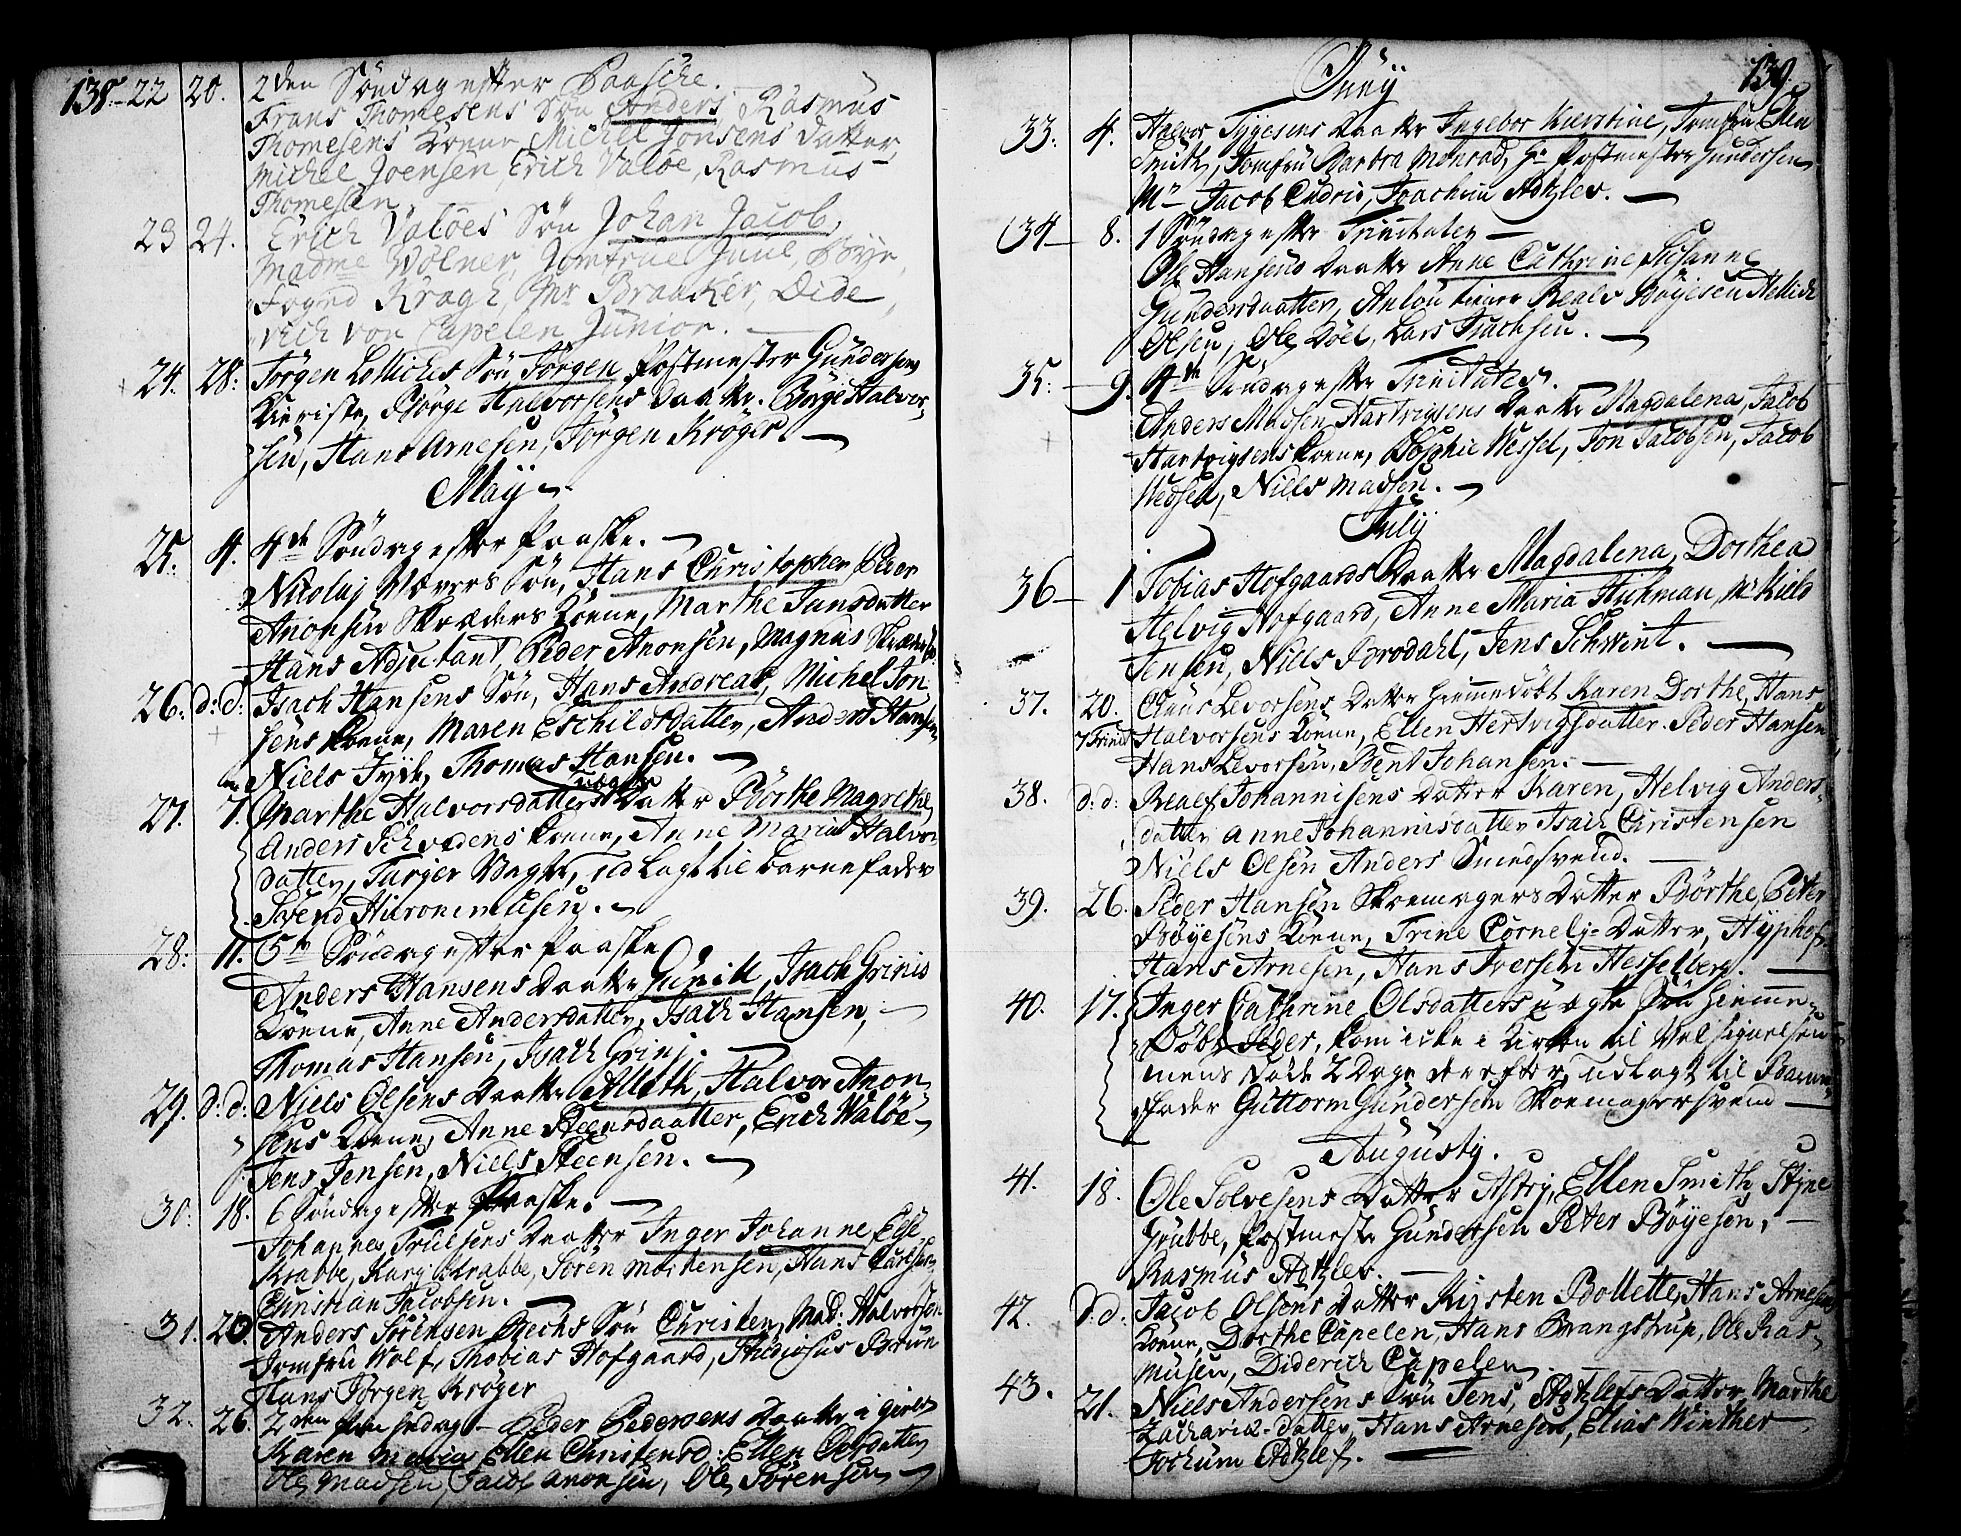 138.
22 20. 2den Söndag efter Paasche.
Frans Thomesens Sön Anders, Rasmus
Thomesens Koene, Michel Jonsens datter,
Michel Joensen, Erich Valöe, Rasmus
Thomesen
23 24. Erich Valöes Sön Johan Jacob,
Madme Wölner, Jomfrue Juul, Böye,
Foged Kragh, Mr Braaker, Dide
rich von Capelen Junior.
24. 28: Jörgen Sön Jörgen, Postmester Gundersens
Kierist, Börge Halvorsens Daatter, Börge Halvor-
sen, Hans Arnesen, Jörgen Kröger.
Maij
25. 4. 4de Söndag efter Paaske.
Nicolaj Sön, Hans Christopher, Peder
Anonsen Skræders Koene, Marthe Jansdatter
Hans Adjutant, Peder Anonsen, Magnus
26. d: d: Isach Hansens Sön, Hans Andreas, Michel Jon-
sens Koene, Maren Eschildsdatter, Anders Hansen
Niels Jyde, Thomas Hansen.
27. 7. Marthe Halvorsdatters uægte Datter Börthe Magrethe,
Anders Schredens Koene, Anne Maria Halvors
datter, Turger Vagt, udlagt til Barnefader
Svend Hieronimusen.
28. 11. 5te Söndag efter Paaske
Anders Hansens Daatter Gunild, Isach Grinis
Koene, Anne Andersdatter, Isach Hansen,
Thomas Hansen, Isach Grini.
29. d: d: Niels Olsens Daatter Alleth, Halvor Anon-
sens Koene, Anne Steensdaatter, Erich Valöe
Jens Jensen, Niels Steensen.
30. 18. 6 Söndag efter Paaske.
Johannes Truelsens Daatter Inger Johanne,
Krabbe, Karj Krabbe, Sören Mortensen, Hans Carlsen
Christian Jacobsen.
31. 20. Anders Sörensen Bechs Sön Christen, Mad: Halvorsen
Jomfru Wolf, Thobias Hofgaard, Thediosus Bruun
Hans Jörgen Kröger
32. 26. 2den Pindsedag Peder Pedersens Daatter
Karen Maria Ellen Christensd: Ellen Olsdatter
Ole Madsen, Jacob Anonsen, Ole Sörensen
139.
Junij
33. 4. Halvor Tygesens Daatter Ingebor Kierstine, Jomfru Elen
Smith, Jomfru Barbra Monrad, Hr Postmester Gundersen
Mr Jacob Cudrio, Joachim Adtzlev.
34 8. 1 Söndag efter Trinitatis
Ole Hansens Daatter Anne Cathrine, Susanne
Gundersdaatter, Reals Böyesen Mellich
Olsen, Ole Doel, Lars Isachsen.
35. 9. 4de Söndag efter Trinitatis.
Anders Madsen Hartvigsens Daatter Magdalena, Jacob
Hartvigsens Koene, Sophie Wessel, Jon Jacobsen, Jacob
Nedsen, Niels Madsen.
Julij
36 1 Tobias Hofgaards Daatter Magdalena, Dorthea
Helvig Hofgaard, Anne Maria Hichman, Mr Niels
Jensen, Niels Brodahl, Jens Schwint.
37. 20. Claus Levorsens Datter Hiemmedöbt Karen Dorthe, Hans
7 Trinit Halvorsens Koene, Ellen Hertvigsdatter. Peder Hansen
Hans Levorsen, Bent Johansen.
38. d: d: Realf Johannisens Datter Karen, Helvig Anders-
datter Anne Johannisdatter Isach Christensen
Niels Olsen Anders Smedsvend.
39. 26. Peder Hansen Skoemagers Datter Börthe, Peter
Böyesens Koene, Trine Cornelj-Datter, Hyphof
Hans Arnesen, Hans Iversen Hesselberg.
40. 17. Inger Cathrine Olsdatters uægte Sön Hiemme-
Döbt Peder, kom icke i Kirken til Velsignelsen
mens Döde 2 Dage derefter, udlagt til Barne-
fader Guttorm Gundersen Skoemagersvend
Augustij.
41. 18. Ole Solvesens Datter Astrj, Ellen Smith, Stjne
Grubbe, Postmester Gundersen Peter Böyesen,
Rasmus Adtzlev.
42. d: d: Jacob Olsens Datter Kirsten Bollette, Hans Arnesens
Koene, Dorthe Capelen, Hans Brangstrup, Ole Ras-
musen, Diderich Capelen
43. 21. Niels Andersens Sön Jens, Adtzlefs Datter, Marthe
Zacharia-datter, Hans Arnesen, Elias Winther
Jochum Adtzlef.